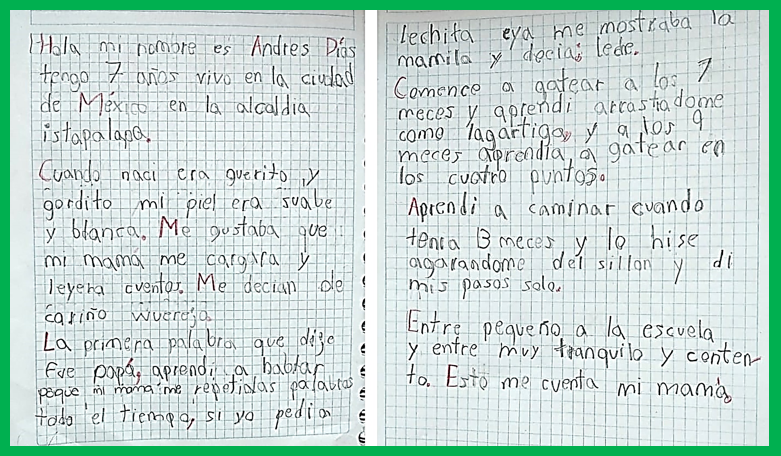 Hola mi nombre es Andres Días
tengo 7 años vivo en la ciudad
de México en la alcaldia
istapalapa.
Cuando naci era guerito y
gordito mi piel era suabe
y blanca. Me gustaba que
mi mamá me cargara y
leyera cuentos. Me decian de
cariño wuerejo.
La primera palabra que dije
Fue papá, aprendi a hablar
peque mi mama me repetialas palabras
todo el tiempo, si yo pedia
lechita eya me mostraba la
mamila y decia: leche.
Comence a gatear a los 7
meces y aprendi arrastradome
como lagartigo, y a los 9
meces aprendia, a gatear en
los cuatro puntos.
Aprendi a caminar cuando
tenia 13 meces y lo hise
agarandome del sillon y di
mis pasos solo.
Entre pequeño a la escuela
y entre muy tranquilo y conten-
to. Esto me cuenta mi mamá.